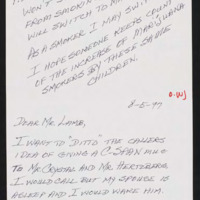 WON'T
FROM SMOKIN
WILL SWITCH TO M
AS A SMOKER I MAY SWIT
I HOPE SOMEONE KEEPS COUNT
OF THE INCREASE OF MARIJUANA
SMOKERS BY THESE SAME
CHILDREN.
DEAR MR. LAMB,
I WANT TO "DITTO" THE CALLERS
IDEA OF GIVING A C-SPAN MUG
TO MR. CRYSTAL AND MR. HERTZBERG.
I WOULD CALL BUT MY SPOUSE IS
ASLEEP AND I WOULD WAKE HIM.